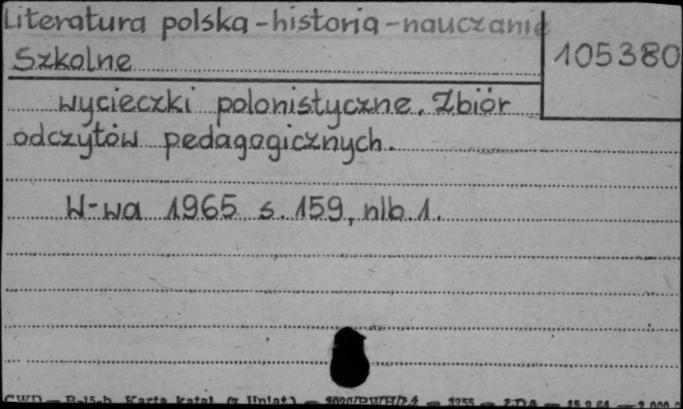 Literatura polska - historia - nauczanie
Szkolne
105380
Wycieczki polonistyczne. Zbiór
odczytów pedagogicznych.
W-wa 1965 s. 159, nlb. 1.
CWD — B-15-b Karta katal. (z Uniat.)